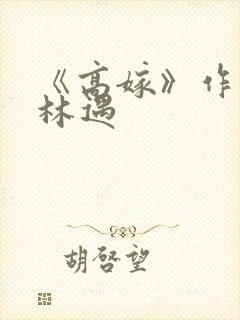 《高嫁》作
林遇
胡啓望